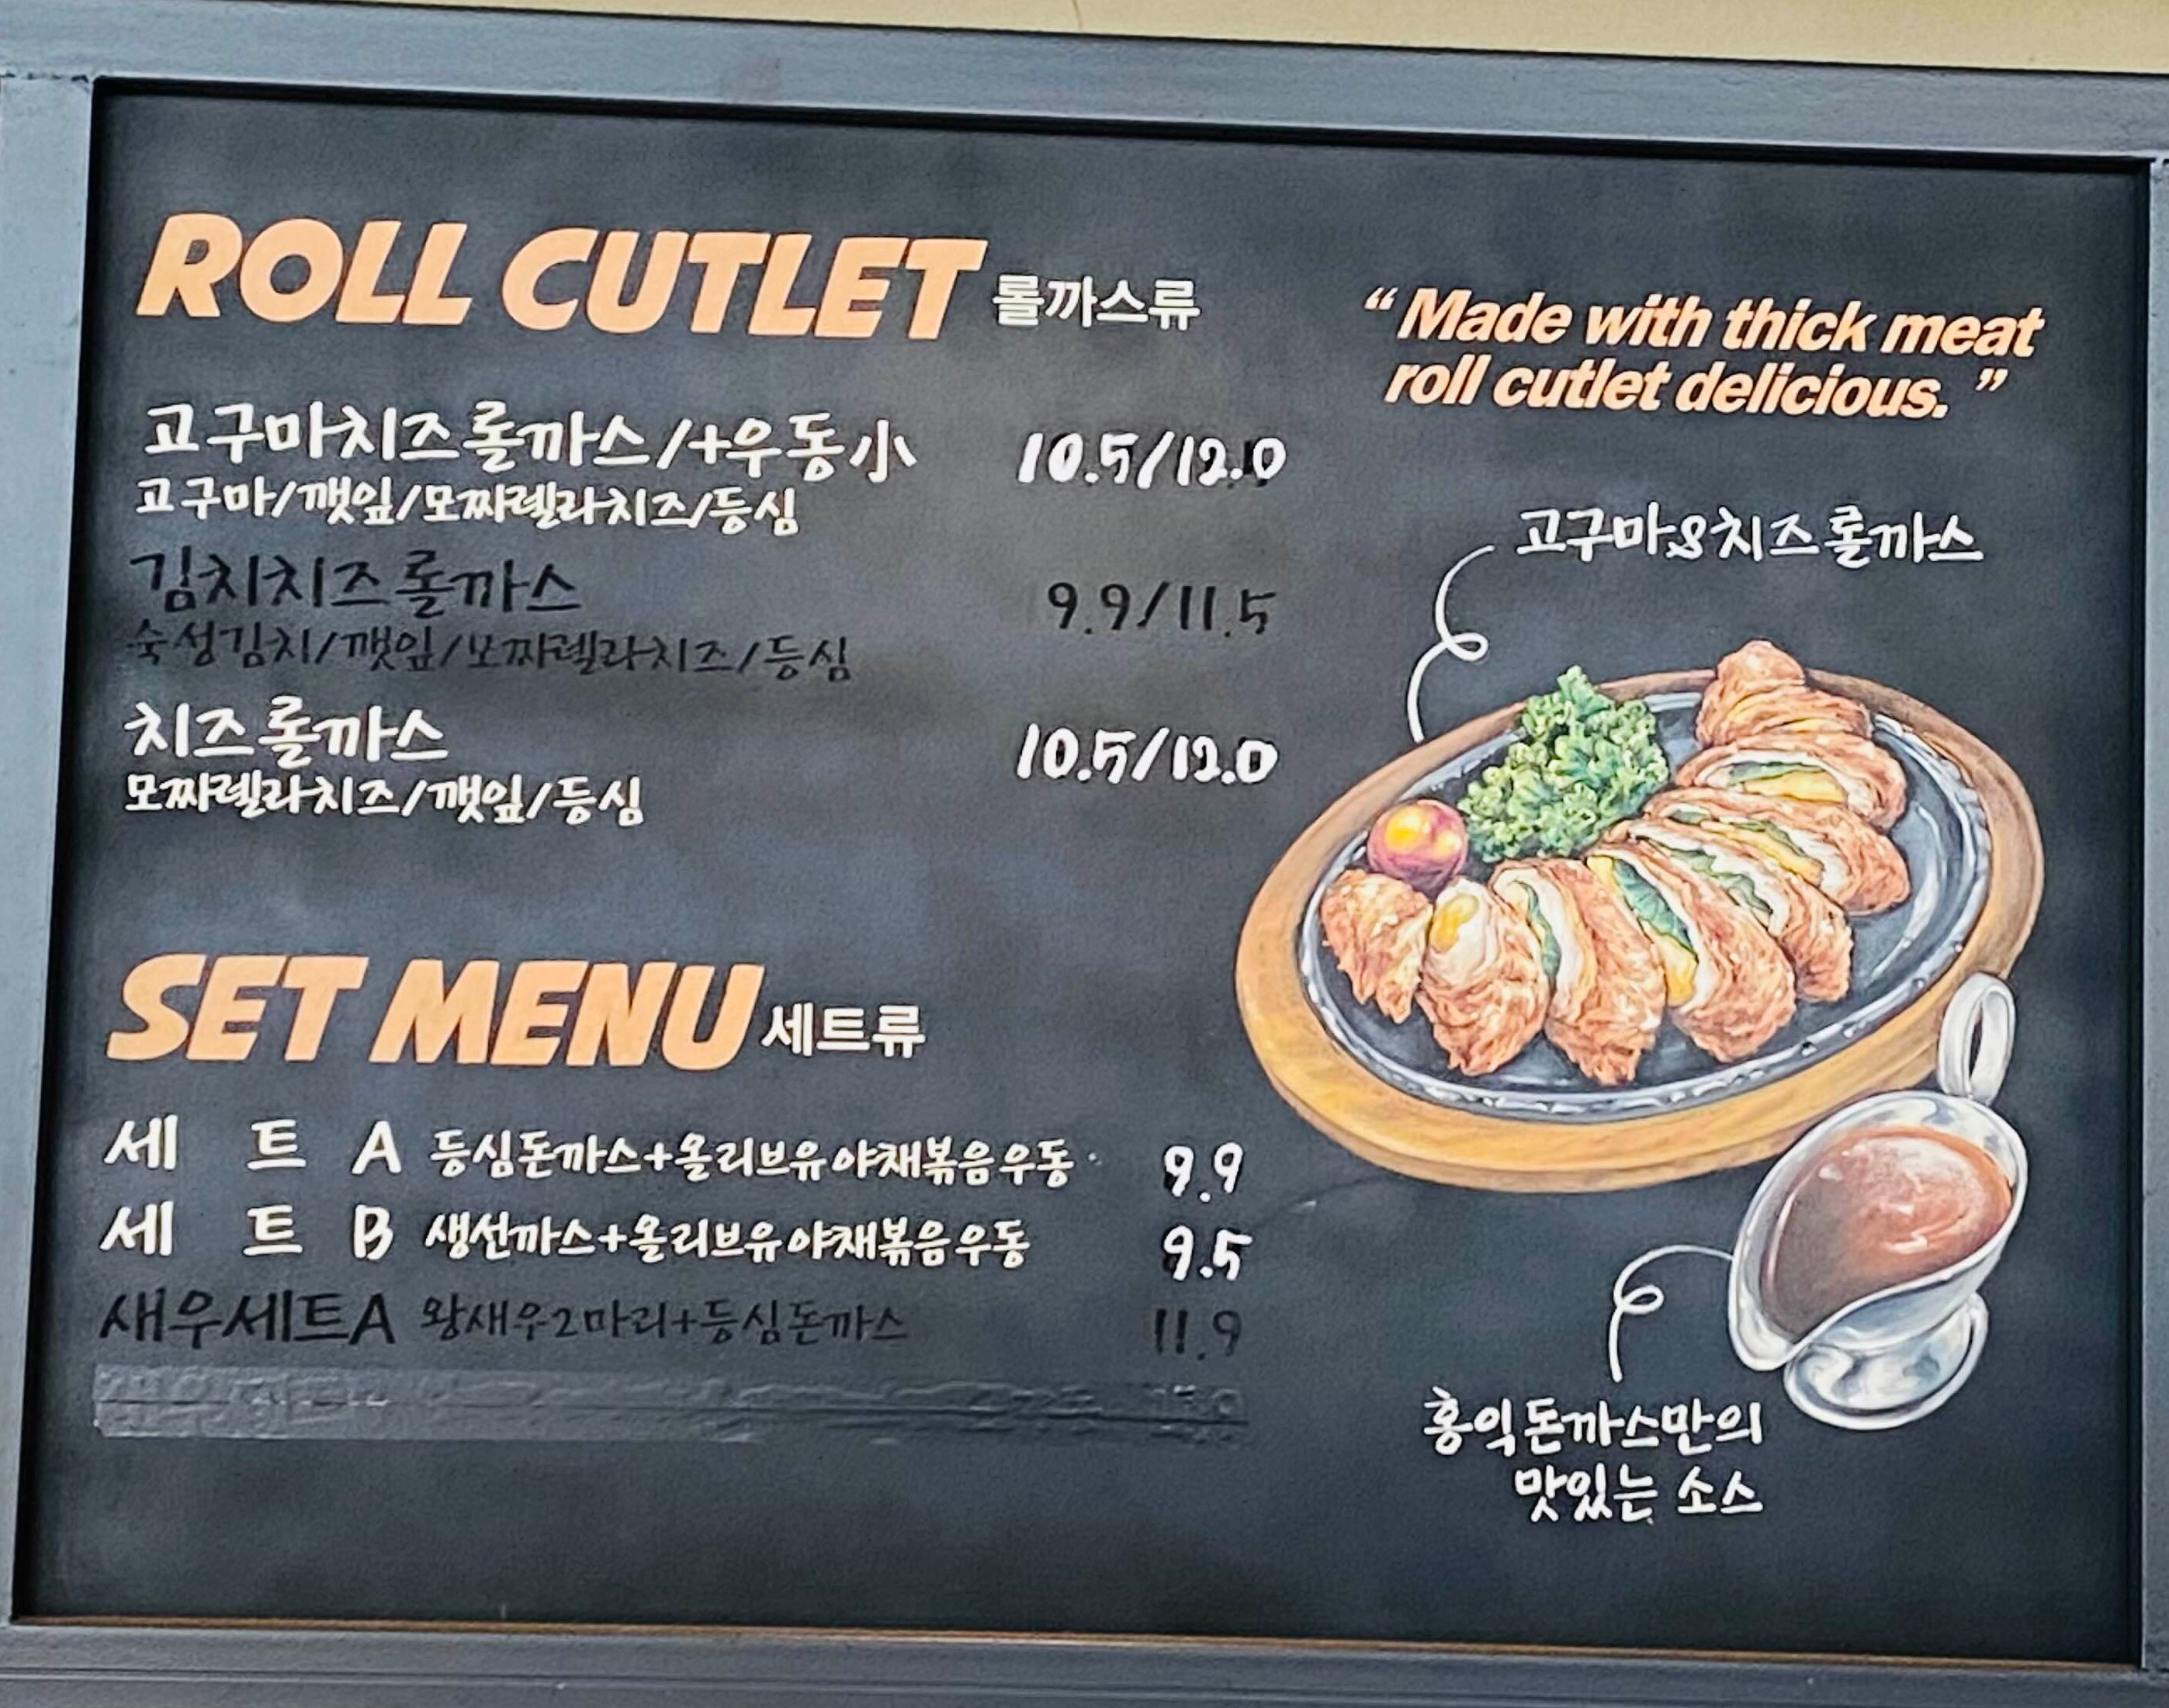 ROLL CUTLET 롤까스류
고구마치즈롤까스/+우동小 10.5/12.0
고구마/깻잎/모짜렐라치즈/등심
김치치즈롤까스 9.9/11.5
숙성김치/깻잎/모짜렐라치즈/등심
치즈롤까스 10.5/12.0
모짜렐라치즈/깻잎/등심
SET MENU 세트류
세 트 A 등심돈까스+올리브유야채볶음우동 9.9
세 트 B 생선까스+올리브유야채볶음우동 9.5
새우세트A 왕새우2마리+등심돈까스 11.9
“Made with thick meat
roll cutlet delicious.”
고구마&치즈롤까스
홍익돈까스만의
맛있는 소스